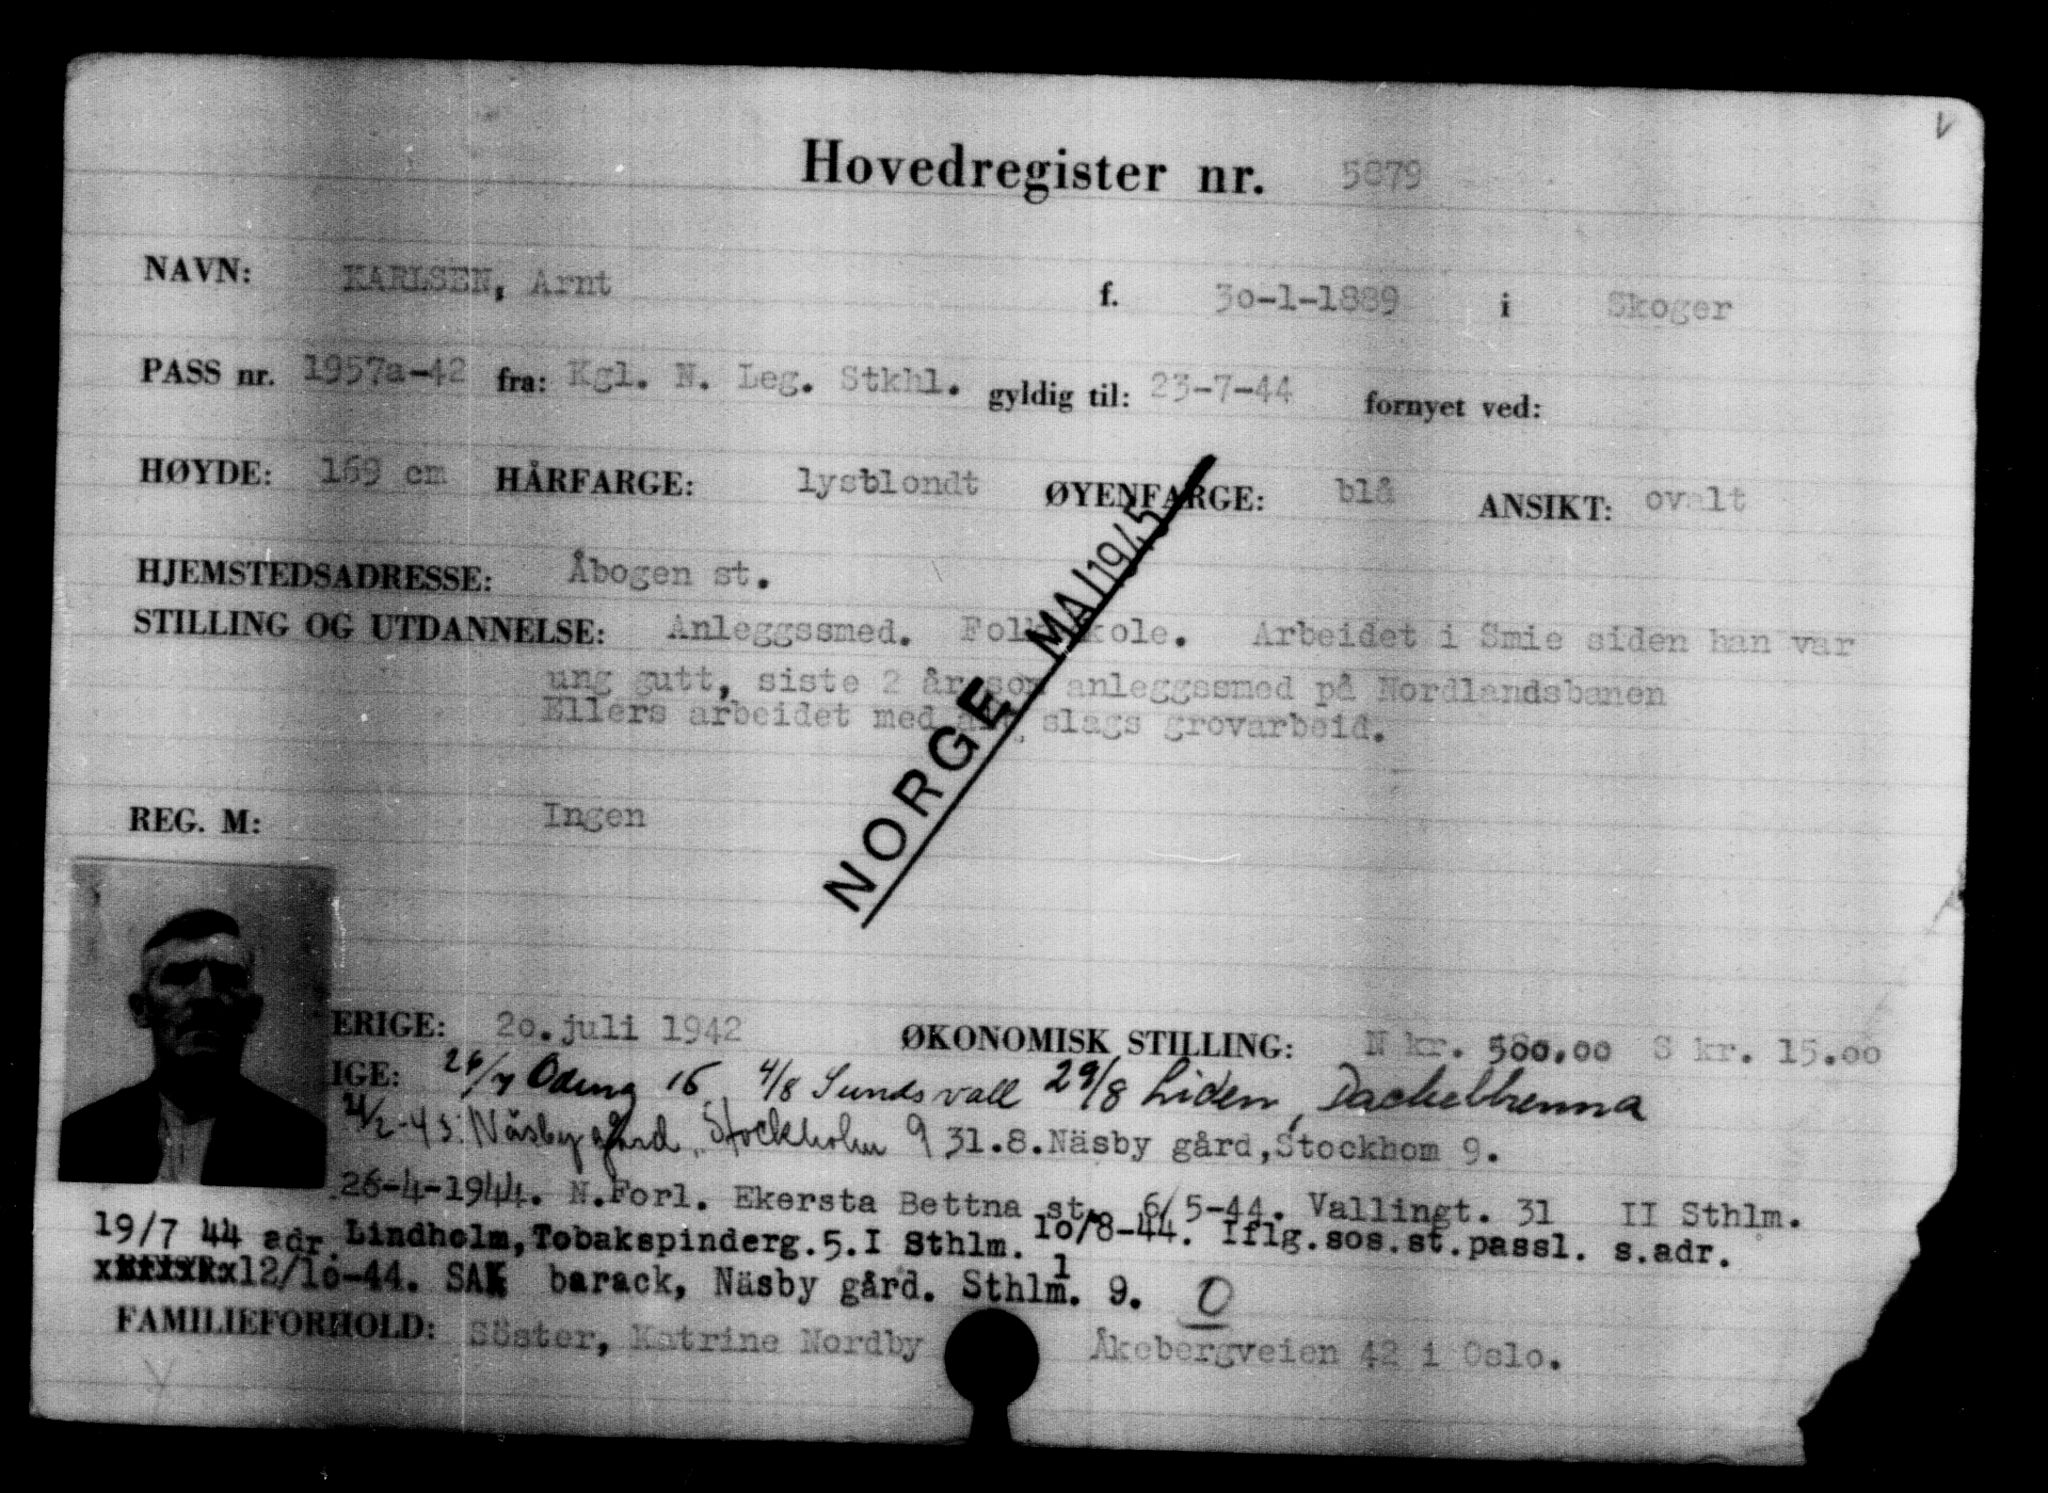 Hovedregister nr. 5879
NAVN: KARLSEN, Arnt f. 3o-1-1889 i Skoger
PASS nr. 1957a-42 fra: Kgl. N. Leg. Stkhl. gyldig til: 23-7-44 fornyet ved:
HØYDE: 169 cm HÅRFARGE: lysblondt ØYENFARGE: blå ANSIKT: ovalt
HJEMSTEDSADRESSE: Åbogen st.
STILLING OG UTDANNELSE: Anleggssmed. Folkskole. Arbeidet i Smie siden han var
ung gutt, siste 2 år som anleggssmed på Nordlandsbanen
Ellers arbeidet med alt slags grovarbeid.
NORGE MAI 1945
REG. M: Ingen
ERIGE: 2o.juli 1942 ØKONOMISK STILLING: N kr. 500.oo S kr. 15.oo
IGE: 4/8 Sundsvall 29/8 Liden,
Näsby gård, Stockholm 9 31.8.Näsby gård,Stockhom 9.
26-4-1944. N.Forl. Ekersta Bettna st. 6/5-44. Vallingt. 31 II Sthlm.
19/7 44 adr. Lindholm,Tobakspinderg.5.I Sthlm. 1o/8-44. Iflg.sos.st.passl. s.adr.
12/1o-44. barack, Näsby gård. Sthlm. 9. O
FAMILIEFORHOLD: Söster, Katrine Nordby Åkebergveien 42 i Oslo.